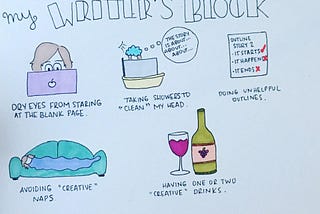 my WRITER'S BLOCK
THE STORY
IS ABOUT...
ABOUT...
ABOUT...
OUTLINE
STORY 2
- IT STARTS
- IT HAPPENS
- IT ENDS
DRY EYES FROM STARING
AT THE BLANK PAGE.
TAKING SHOWERS TO
"CLEAN" MY HEAD.
DOING UNHELPFUL
OUTLINES.
AVOIDING "CREATIVE"
NAPS
HAVING ONE OR TWO
"CREATIVE" DRINKS.